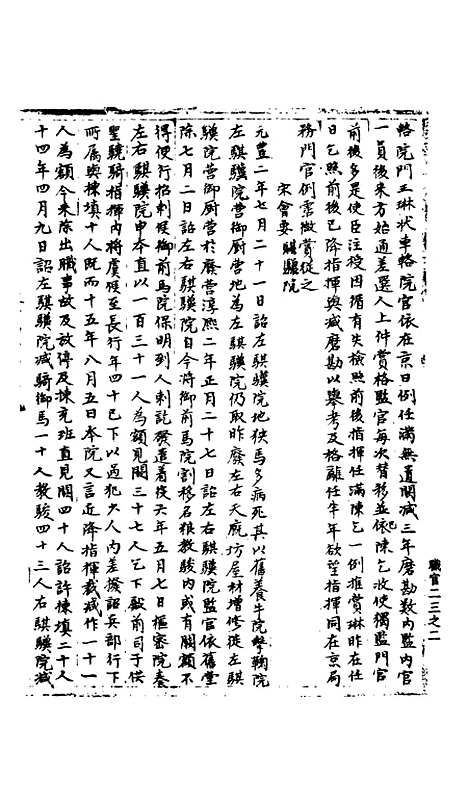 輅院門王琳狀車輅院官依在京日例任滿無遺闕減三年磨勘數內監內官
一員後來方始通差選人上件賞格監官每次替移並依陳乞收使獨監門官
前後多是使臣注授因循有失檢照前後指揮任滿陳乞一例推賞琳昨在任
日乞照前後已降指揮與減磨勘以舉考及格離任半年欲望指揮同在京局
務門官例霑微賞從之
宋會要 騏驥院
元豐二年七月二十一日詔左騏驥院地狹馬多病死其以舊養牛院擊鞠院
左騏驥院營御厨營地為左騏驥院仍取昨廢左右天廐坊屋材增修徙左騏
驥院營御厨營於廢營淳熙二年正月二十七日詔左右騏驥院監官依舊堂
除七月二日詔左右騏驥院自今將御前馬院割移名糧教駿內或有闕額不
得便行招刺候御前馬院保明到人刺訖發遣着役六年五月七日樞密院奏
左右騏驥院申本直以一百三十一人為額見闕三十七人乞下殿前司于供
聖驍騎指揮內將虞候至長行年四十已下以過犯人內差撥詔兵部行下
所屬與揀填十人既而十五年八月五日本院又言近降指揮裁減作一十一
人為額今來除出職事故及放停及揀充班直見闕四十人詔許揀填二十人
十四年四月九日詔左騏驥院減騎御馬一十人教駿四十三人右騏驥院減
職官二三之二